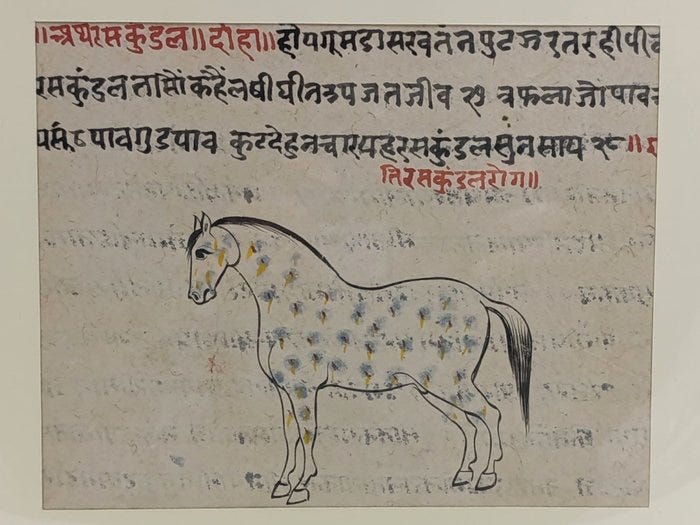 ॥अथरसकुंडल॥दोहा॥होयगुमडासरवतनपुटजरतरहीपीव
रसकुंडलतासौंकहैंलषीघीनउपजतजीव २७ त्रफलाजोपाव
पसं८पावगुडपाव कुटदेहुनचारपहरसकुंडलसुंनसाय २८॥
तिरसकुंडलरोग॥